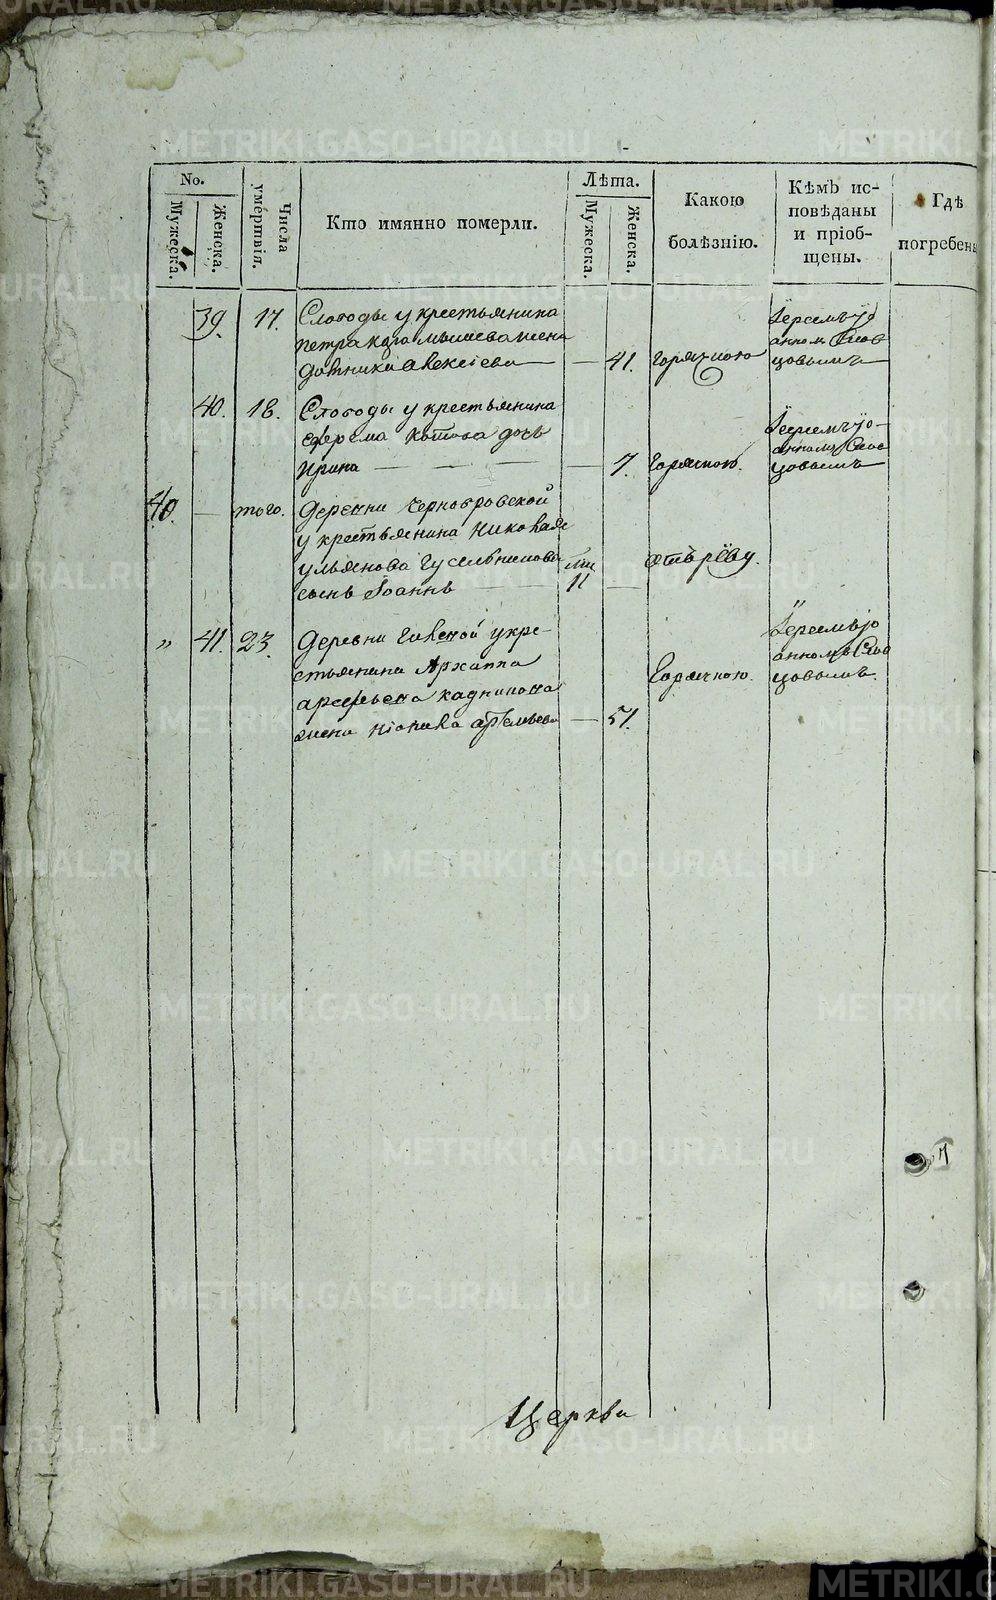 No.
Мужеска.
Женска.
Числа умертвія.
Кто имянно померли.
Лѣта.
Мужеска.
Женска.
Какою болѣзнію.
Кѣмъ ис-
повѣданы
и пріоб-
щены.
Гдѣ
погребены
39. 17. Слободы у крестьянина
петра жена
домника алексіева — — 41. горячкою
Іереемъ Іо
анномъ Слов
цовымъ
40. 18. Слободы у крестьянина
ефрема котова дочь
Ирина — — — — 7. Горячкою.
Іереемъ Іо-
анномъ Слов
цовымъ
40. — того. деревни Чернобровской
у крестьянина Николая
ульянова Гусельникова
сынъ Іоаннъ — 11 — Отъ рёву.
„ 41. 23. Деревни у кре-
стьянина Архиппа
жена артемьева — 51. Горячкою.
Іереемъ Іо
анномъ Слов
цовымъ.
Церкви
METRIKI.GASO-URAL.RU